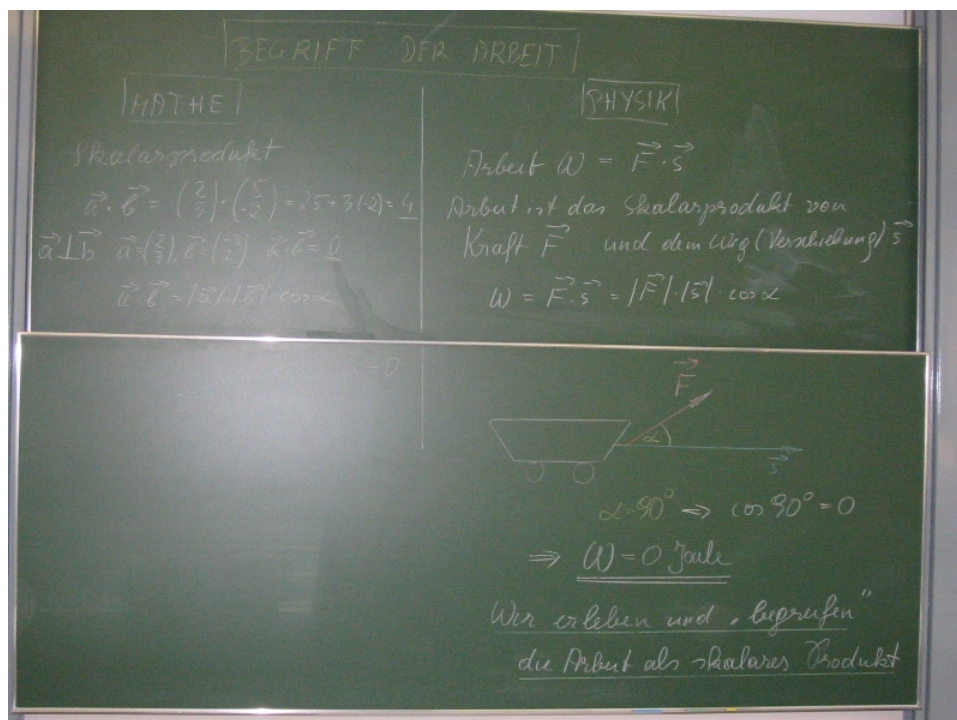 BEGRIFF DER ARBEIT
MATHE
Skalarprodukt
a⃗ · b⃗ = (2 3) · (5 -2) = 2·5+3·(-2) = 4
a⃗ ⊥ b⃗ a⃗ = (2 3), b⃗ = (-3 2) a⃗·b⃗ = 0
a⃗·b⃗ = |a⃗|·|b⃗|·cos α
= 0
PHYSIK
Arbeit W = F⃗ · s⃗
Arbeit ist das Skalarprodukt von
Kraft F⃗ und dem Weg (Verschiebung) s⃗
W = F⃗·s⃗ = |F⃗|·|s⃗|·cos α
F⃗
α
s⃗
α=90° ⇒ cos 90° = 0
⇒ W = 0 Joule
Wir erleben und „begreifen“
die Arbeit als skalares Produkt